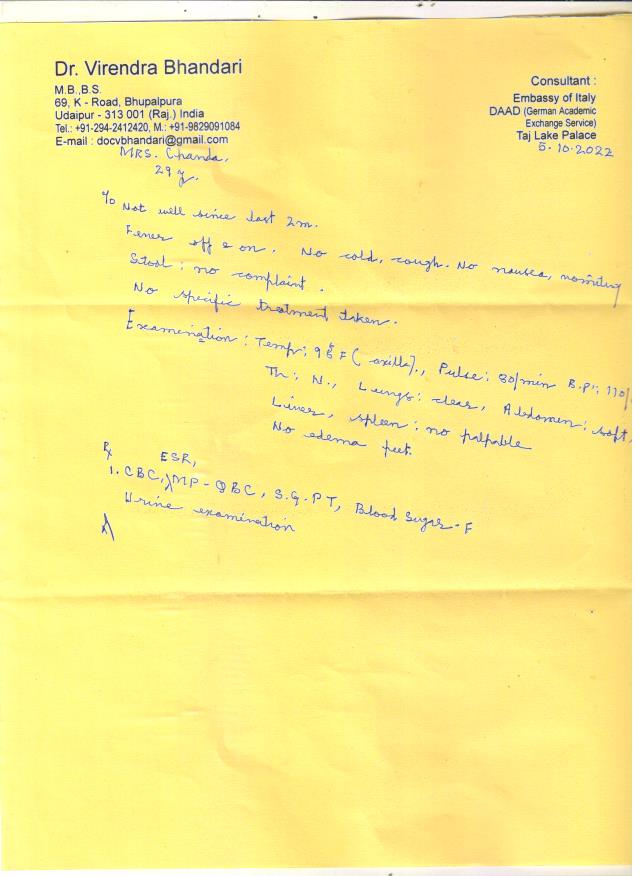 Dr. Virendra Bhandari
M.B.,B.S.
69, K - Road, Bhupalpura
Udaipur - 313 001 (Raj.) India
Tel.: +91-294-2412420, M.: +91-9829091084
E-mail : docvbhandari@gmail.com
Consultant :
Embassy of Italy
DAAD (German Academic
Exchange Service)
Taj Lake Palace
5-10.2022
MRS. Chanda,
29 y.
Not well since last 2m.
Fever off & on. No cold, cough. No nausea, vomiting
Stool : no complaint.
No specific treatment taken.
Examination : Temp: F (axilla)., Pulse: 80/min B.P: 110/
Th: N., Lungs: clear, Abdomen: soft,
Liver, spleen: no palpable
No edema feet.
Rx ESR,
1. CBC, MP-QBC, S.G.PT, Blood Sugar-F
Urine examination